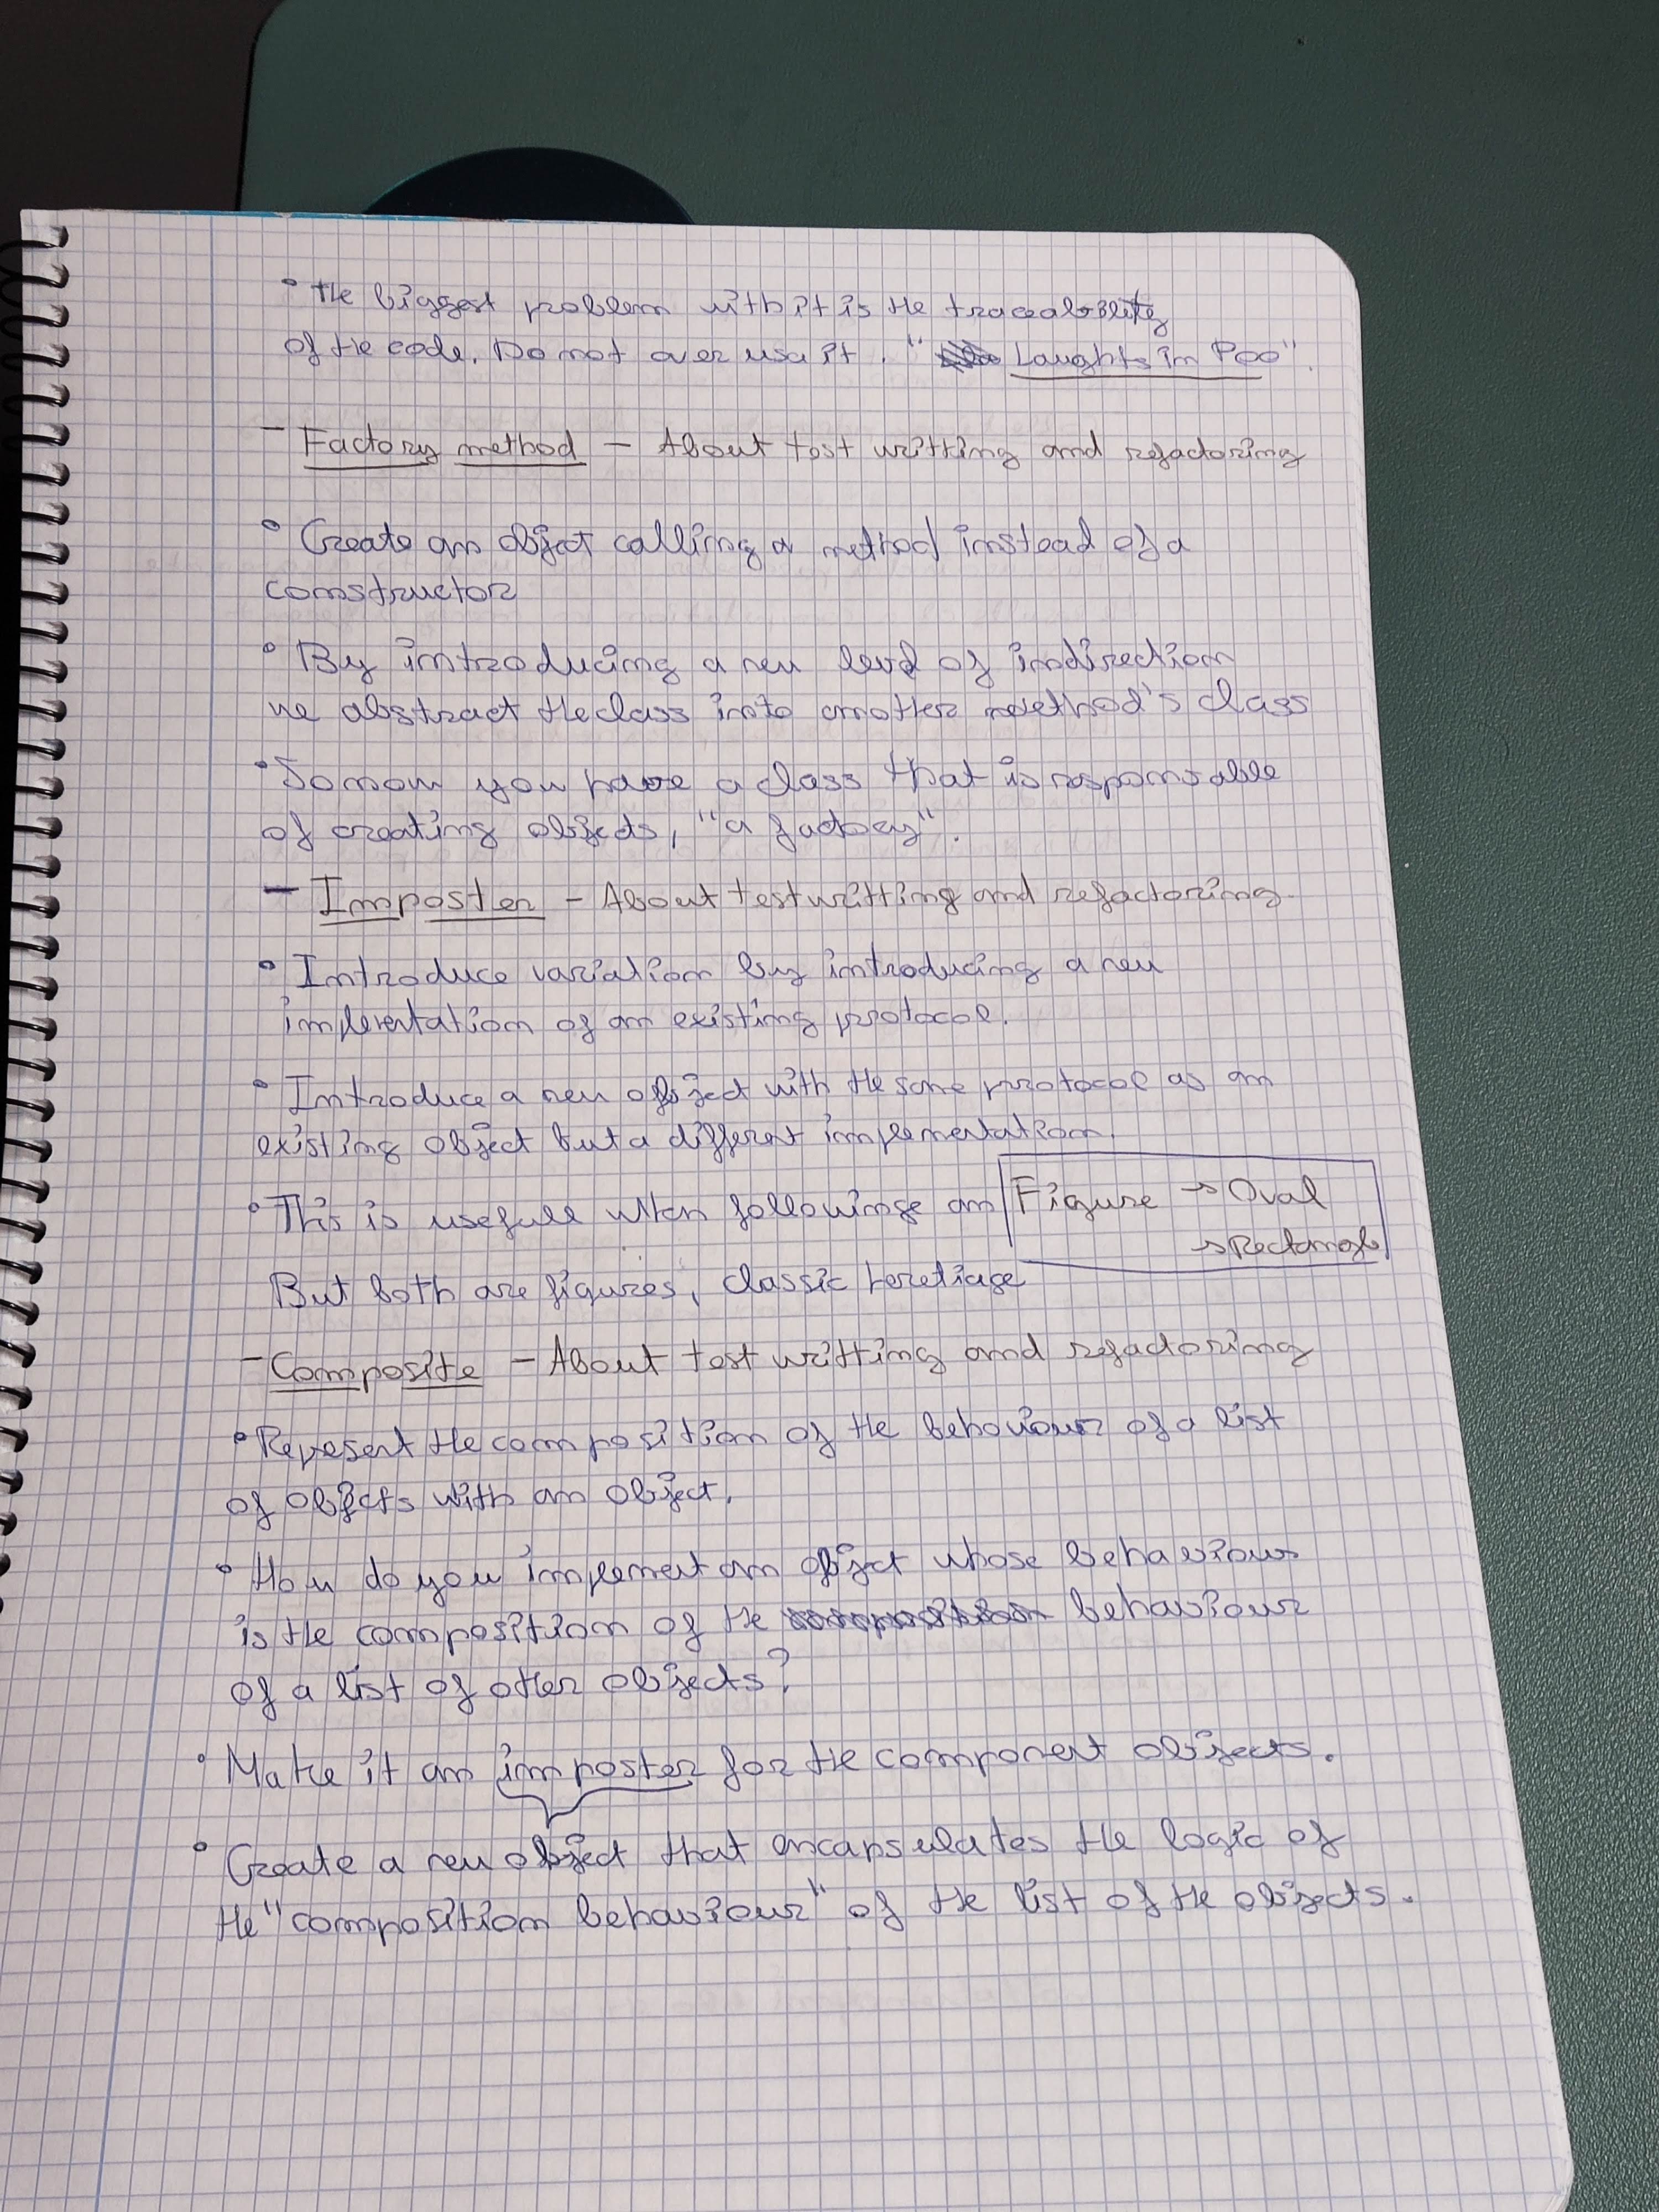 • The biggest problem with it is the traceability
of the code. Do not over use it. " Laughts in Poo".
- Factory method - About test writting and refactoring
• Create an object calling a method instead of a
constructor
• By introducing a new level of indirection
we abstract the class into another method's class
• So now you have a class that is responsable
of creating objects, "a factory".
- Imposter - About test writting and refactoring
• Introduce variation by introducing a new
implementation of an existing protocol.
• Introduce a new object with the same protocol as an
existing object but a different implementation.
• This is usefull when followinge an Figure → Oval
→ Rectangle
But both are figures, classic heretiage
- Composite - About test writting and refactoring
• Represent the composition of the behaviour of a list
of objects with an object.
• How do you implement an object whose behaviour
is the composition of the behaviour
of a list of other objects?
• Make it an imposter for the component objects.
• Create a new object that encapsulates the logic of
the "composition behaviour" of the list of the objects.